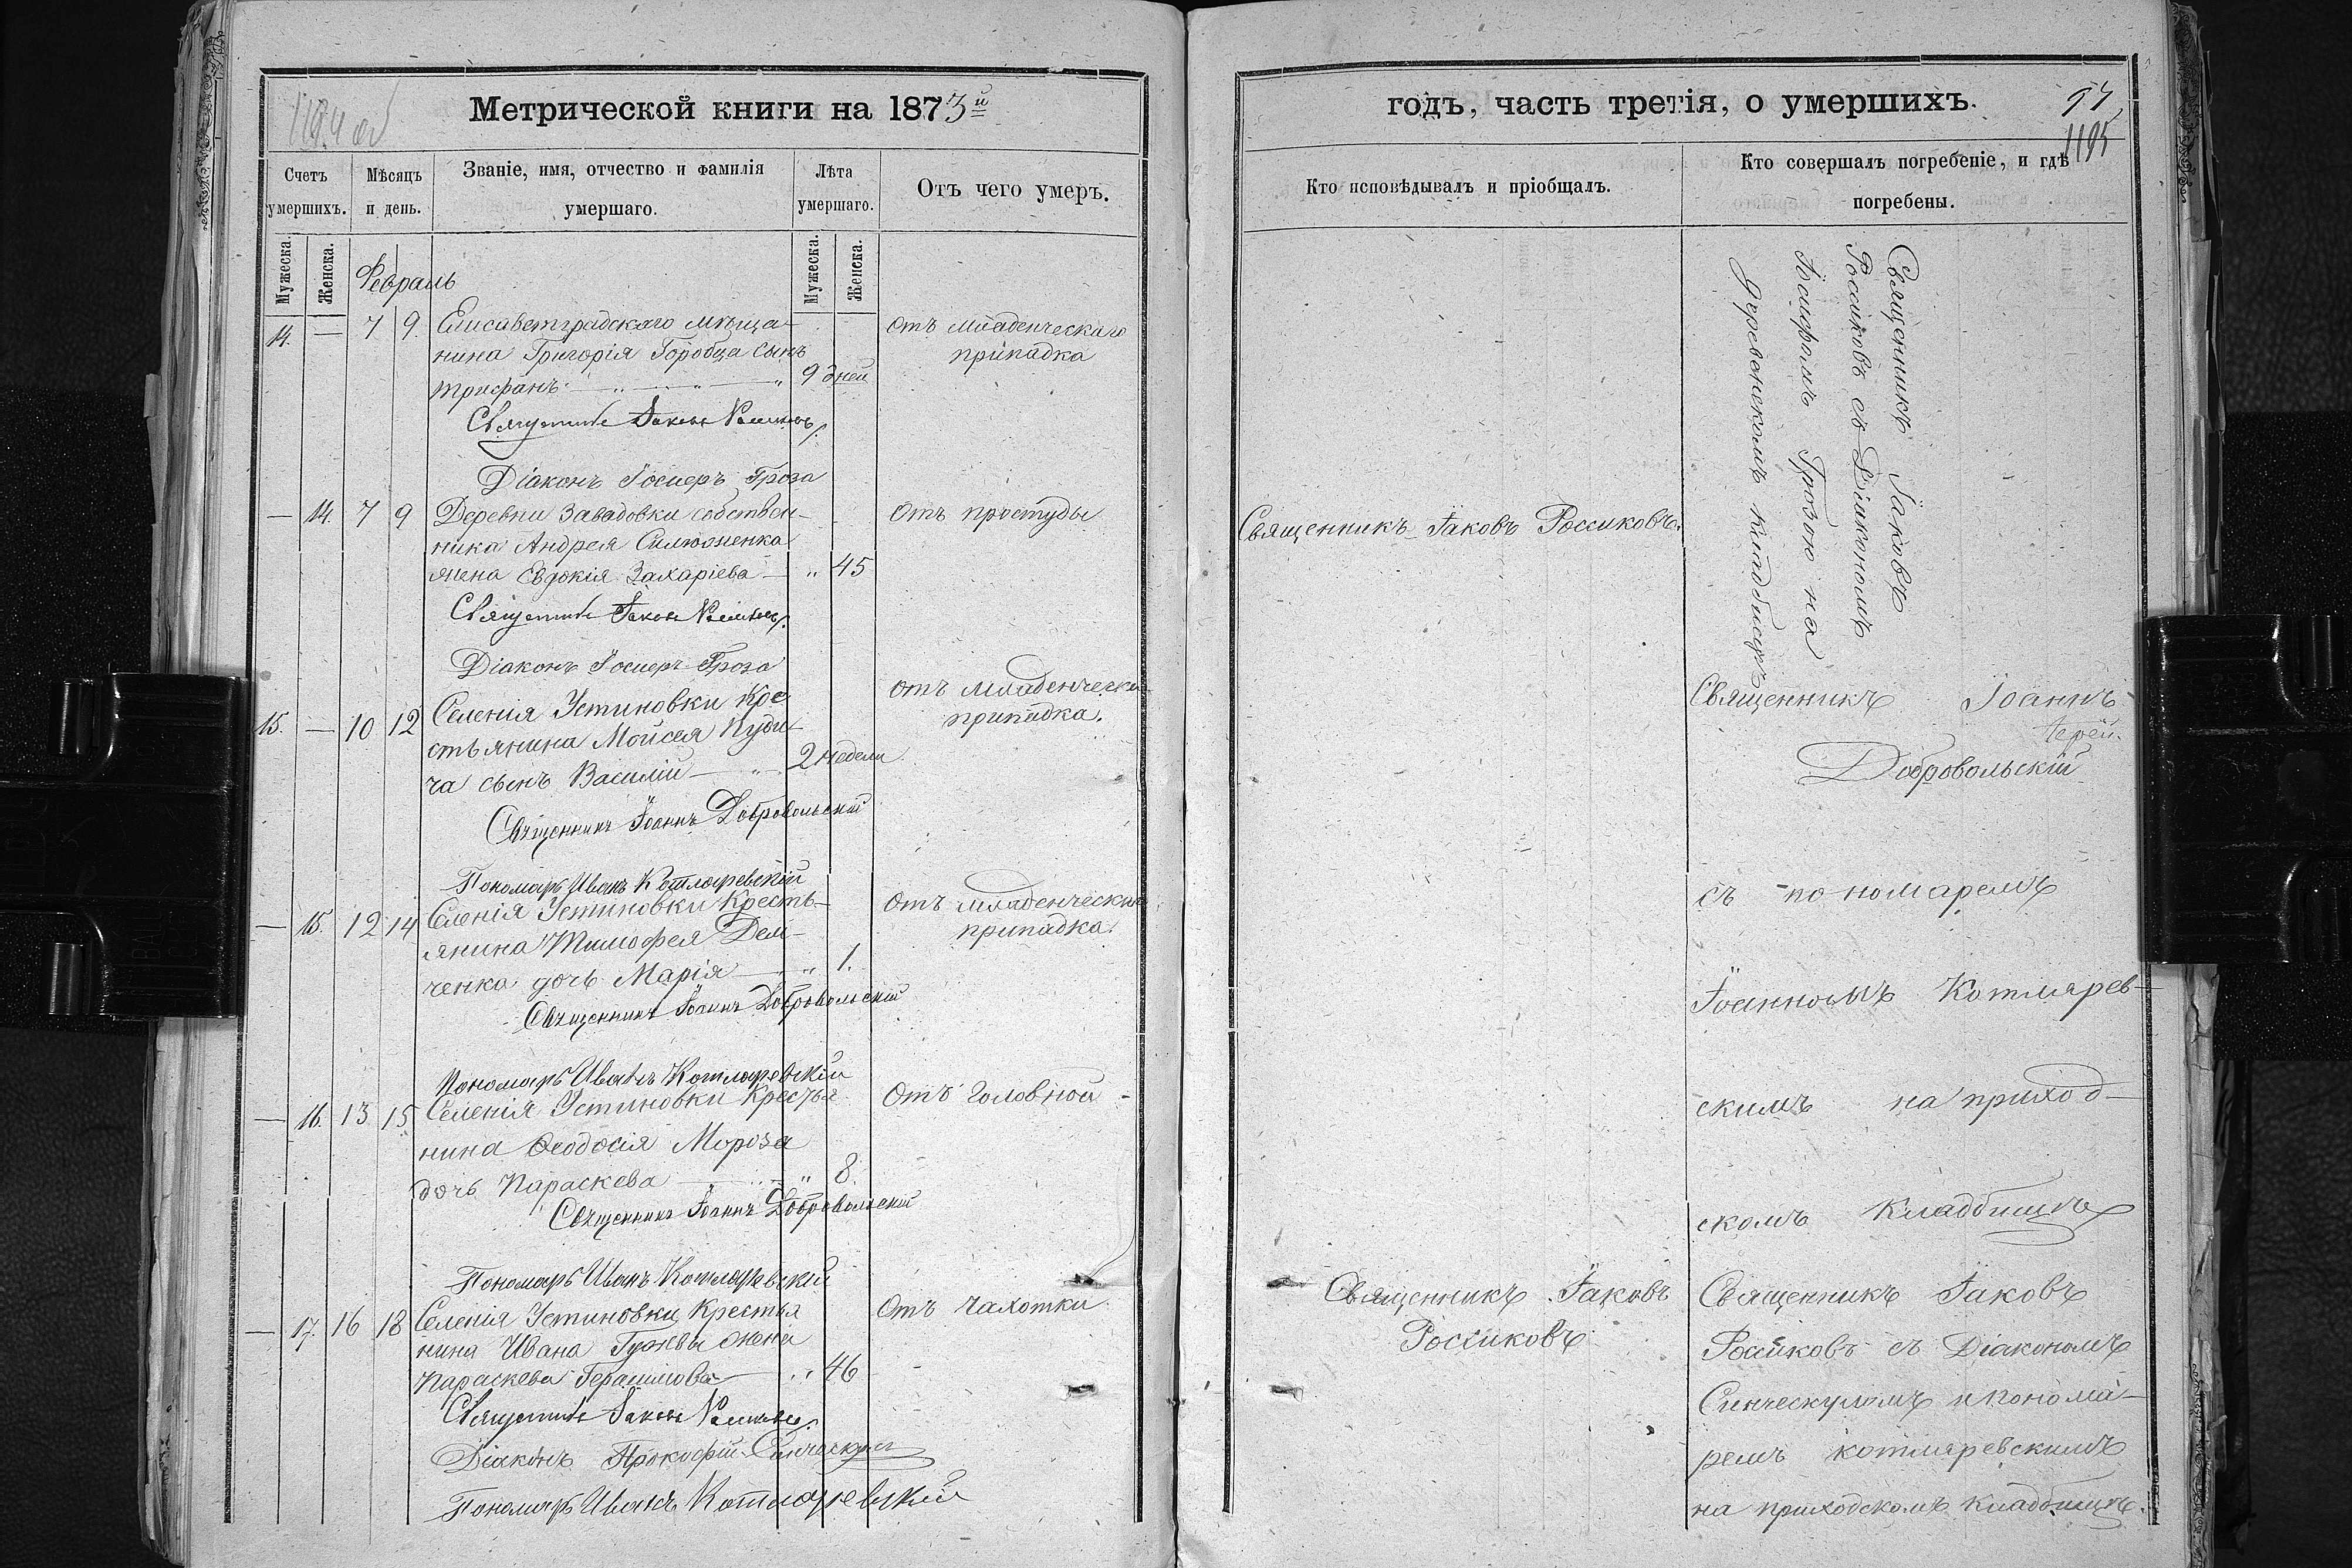 1194 об
Метрической книги на 1873й
Счетъ умершихъ.
Мѣсяцъ и день.
Званіе, имя, отчество и фамилія
умершаго.
Лѣта умершаго.
Отъ чего умеръ.
Мужеска.
Женска.
Мужеска.
Женска.
Февраль
14. — 7 9. Елисаветградскаго мѣща- отъ младенческаго
нина Григорія Горобца сынъ припадка
Трифанъ 9 дней
Священникъ Іаковъ Россиковъ
Діаконъ Іосифъ Гроза
— 14. 7 9 Деревни Завадовки собствен- отъ простуды
ника Андрея
жена Евдокія Захаріева — " 45
Священникъ Іаковъ Россиковъ
Діаконъ Іосифъ Гроза
15. — 10 12 Селенія Устиновки Кре отъ младенческ
стьянина Мойсея Куди- припадка.
ча сынъ Василій — " 2 недели
Священникъ Іоаннъ Добровольскій
Пономарь Иванъ Котляревскій
— 15. 12 14 Селенія Устиновки Кресть- отъ младенческ
янина Тимофея Дем- припадка.
ченка дочь Марія — " 1.
Священникъ Іоаннъ Добровольскій
Пономарь Иванъ Котляревскій
— 16. 13 15 Селенія Устиновки Крестья Отъ головной
нина Ѳеодосія Мороза
дочь Параскева — " 8.
Священникъ Іоаннъ Добровольскій
Пономарь Иванъ Котляревскій
— 17. 16 18 Селенія Устиновки Крестья Отъ чахотки
нина Ивана Гужвы жена
Параскева Герасимова " 46
Священникъ Іаковъ Россиковъ
Діаконъ Прокофій Синческулъ
Пономарь Иванъ Котляревскій
годъ, часть третія, о умершихъ.
97
1195
Кто исповѣдывалъ и пріобщалъ.
Кто совершалъ погребеніе, и гдѣ
погребены.
Священникъ Іаковъ
Россиковъ съ Діакономъ
Іосифомъ Грозою на
деревенскомъ кладбищѣ
Священникъ Іаковъ Россиковъ.
Священникъ Іоаннъ
Іерей.
Добровольскій
съ пономаремъ
Іоанномъ Котлярев-
скимъ на приход-
скомъ кладбищѣ
Священникъ Іаковъ
Россиковъ
Священникъ Іаковъ
Россиковъ съ Діакономъ
Синческуломъ и понома-
ремъ котляревскимъ
на приходскомъ кладбищѣ.